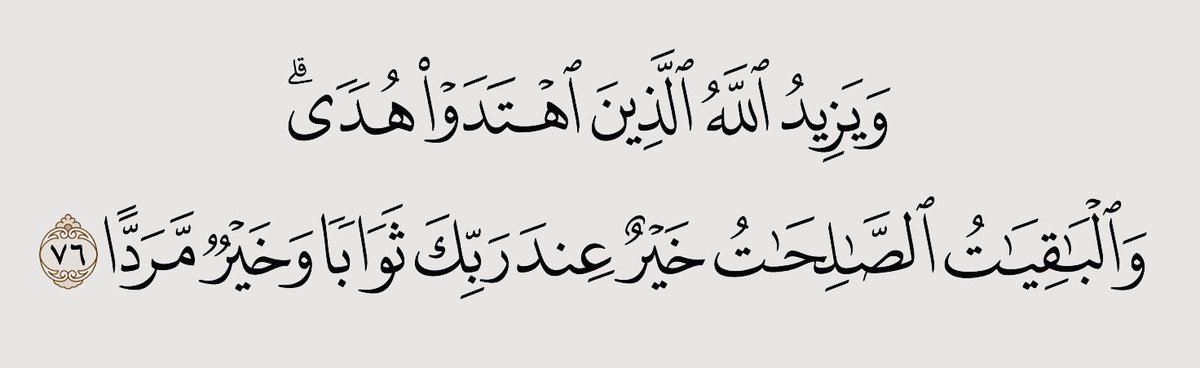 وَيَزِيدُ ٱللَّهُ ٱلَّذِينَ ٱهۡتَدَوۡاْ هُدٗىۗ
وَٱلۡبَٰقِيَٰتُ ٱلصَّٰلِحَٰتُ خَيۡرٌ عِندَ رَبِّكَ ثَوَابٗا وَخَيۡرٞ مَّرَدًّا ٧٦